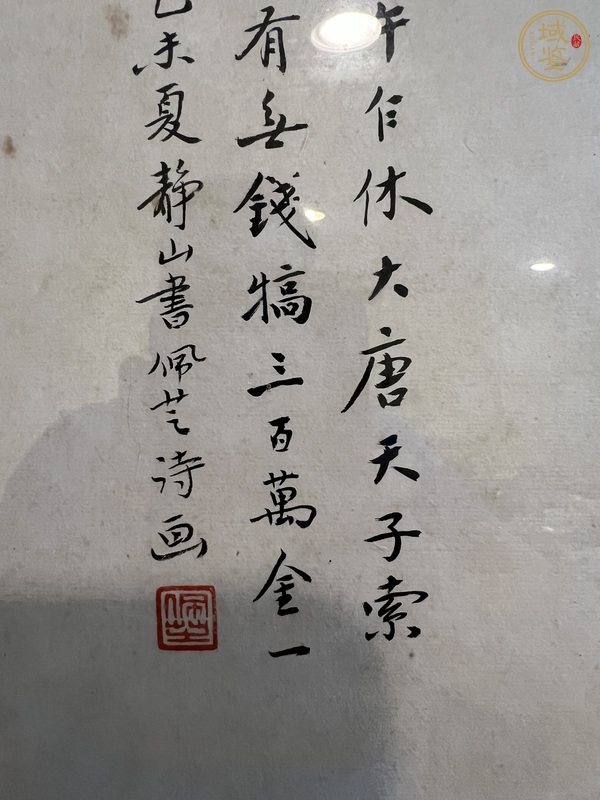 午仨休大唐天子索
有無錢犒三百萬金一
己未夏静山書佩芝诗画
域鉴